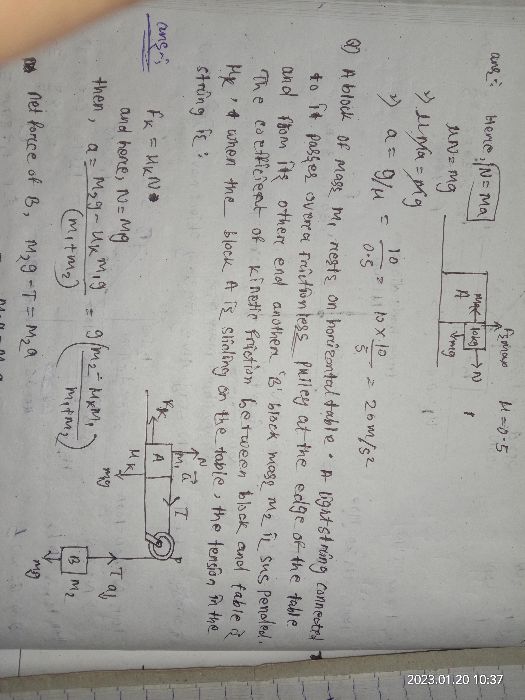 ans:- Hence, N = Ma
μN = mg
⇒ μMa = mg
⇒ a = g/μ = 10/0.5 = 10 × 10/5 = 20 m/s²
fsmax
μ = 0.5
A
10kg
N
mg
Q) A block of mass m₁ rests on horizontal table. A light string connected
to it passes over a frictionless pulley at the edge of the table
and from its other end another 'B' block mass m₂ is suspended.
The coefficient of kinetic friction between block and table is
μK, when the block A is sliding on the table, the tension in the
string is:
ans:-
fK = μKN
and here, N = mg
then, a = m₂g - μKm₁g/(m₁+m₂) = g(m₂ - μKm₁/m₁+m₂)
net force of B, m₂g - T = m₂a
N
m₁
a
A
T
FK
μK
mg
T
a
B
m₂
mg
2023.01.20 10:37